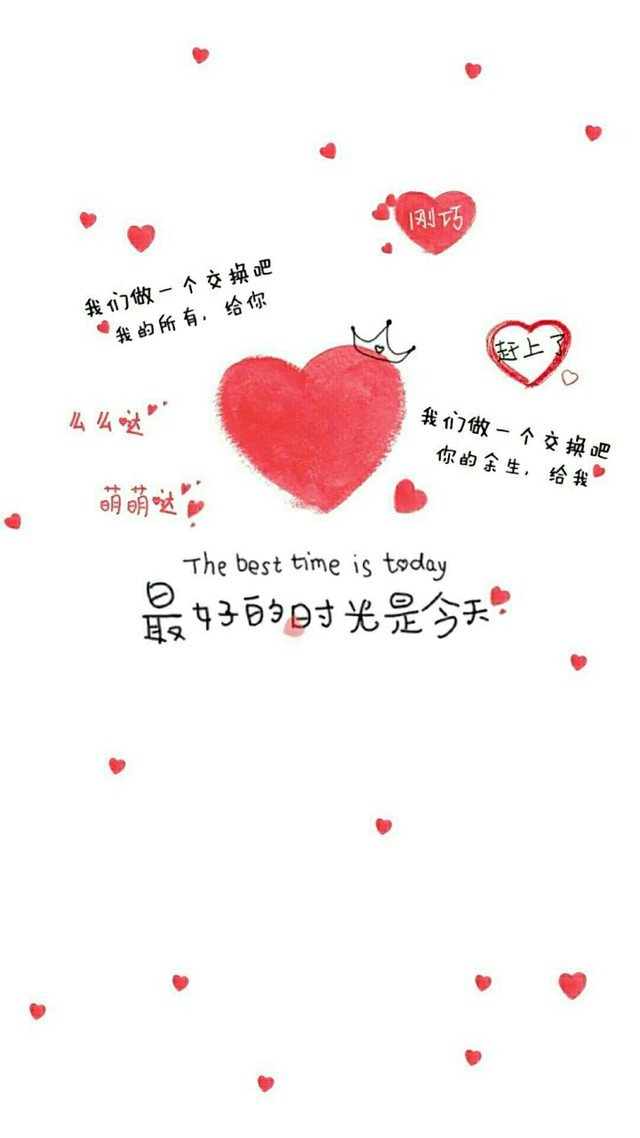 刚巧
我们做一个交换吧
我的所有，给你
赶上了
么么哒
我们做一个交换吧
你的余生，给我
萌萌哒
The best time is today
最好的时光是今天